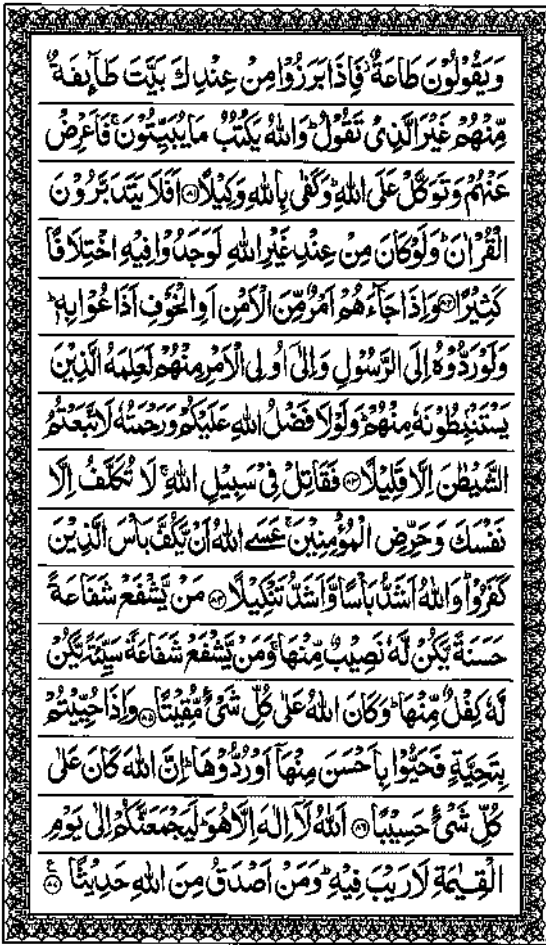 وَيَقُوۡلُوۡنَ طَاعَةٌ ۫ فَاِذَا بَرَزُوۡا مِنۡ عِنۡدِكَ بَيَّتَ طَآٮِٕفَةٌ
مِّنۡهُمۡ غَيۡرَ الَّذِىۡ تَقُوۡلُ‌ ؕ وَاللّٰهُ يَكۡتُبُ مَا يُبَيِّتُوۡنَ‌ ۚ فَاَعۡرِضۡ
عَنۡهُمۡ وَتَوَكَّلۡ عَلَى اللّٰهِ‌ ؕ وَكَفٰى بِاللّٰهِ وَكِيۡلًا ﴿۸۱﴾ اَفَلَا يَتَدَبَّرُوۡنَ
الۡقُرۡاٰنَ‌ ؕ وَلَوۡ كَانَ مِنۡ عِنۡدِ غَيۡرِ اللّٰهِ لَوَجَدُوۡا فِيۡهِ اخۡتِلَافًا
كَثِيۡرًا ﴿۸۲﴾ وَاِذَا جَآءَهُمۡ اَمۡرٌ مِّنَ الۡاَمۡنِ اَوِ الۡخَـوۡفِ اَذَاعُوۡا بِهٖ‌ ؕ
وَلَوۡ رَدُّوۡهُ اِلَى الرَّسُوۡلِ وَاِلٰٓى اُولِى الۡاَمۡرِ مِنۡهُمۡ لَعَلِمَهُ الَّذِيۡنَ
يَسۡتَنۡۢبِطُوۡنَهٗ مِنۡهُمۡ‌ؕ وَلَوۡلَا فَضۡلُ اللّٰهِ عَلَيۡكُمۡ وَرَحۡمَتُهٗ لَاتَّبَعۡتُمُ
الشَّيۡطٰنَ اِلَّا قَلِيۡلًا ﴿۸۳﴾ فَقَاتِلۡ فِىۡ سَبِيۡلِ اللّٰهِ‌ ۚ لَا تُكَلَّفُ اِلَّا
نَفۡسَكَ‌ وَحَرِّضِ الۡمُؤۡمِنِيۡنَ‌ ۚ عَسَے اللّٰهُ اَنۡ يَّكُفَّ بَاۡسَ الَّذِيۡنَ
كَفَرُوۡا‌ ؕ وَاللّٰهُ اَشَدُّ بَاۡسًا وَّاَشَدُّ تَـنۡكِيۡلًا ﴿۸۴﴾ مَنۡ يَّشۡفَعۡ شَفَاعَةً
حَسَنَةً يَّكُنۡ لَّهٗ نَصِيۡبٌ مِّنۡهَا‌ ۚ وَمَنۡ يَّشۡفَعۡ شَفَاعَةً سَيِّئَةً يَّكُنۡ
لَّهٗ كِفۡلٌ مِّنۡهَا‌ ؕ وَكَانَ اللّٰهُ عَلٰى كُلِّ شَىۡءٍ مُّقِيۡتًا ﴿۸۵﴾ وَاِذَا حُيِّيۡتُمۡ
بِتَحِيَّةٍ فَحَيُّوۡا بِاَحۡسَنَ مِنۡهَاۤ اَوۡ رُدُّوۡهَا‌ ؕ اِنَّ اللّٰهَ كَانَ عَلٰى
كُلِّ شَىۡءٍ حَسِيۡبًا ﴿۸۶﴾ اَللّٰهُ لَاۤ اِلٰهَ اِلَّا هُوَ‌ ؕ لَيَجۡمَعَنَّكُمۡ اِلٰى يَوۡمِ
الۡقِيٰمَةِ لَا رَيۡبَ فِيۡهِ‌ ؕ وَمَنۡ اَصۡدَقُ مِنَ اللّٰهِ حَدِيۡثًا ﴿۸۷﴾ ع